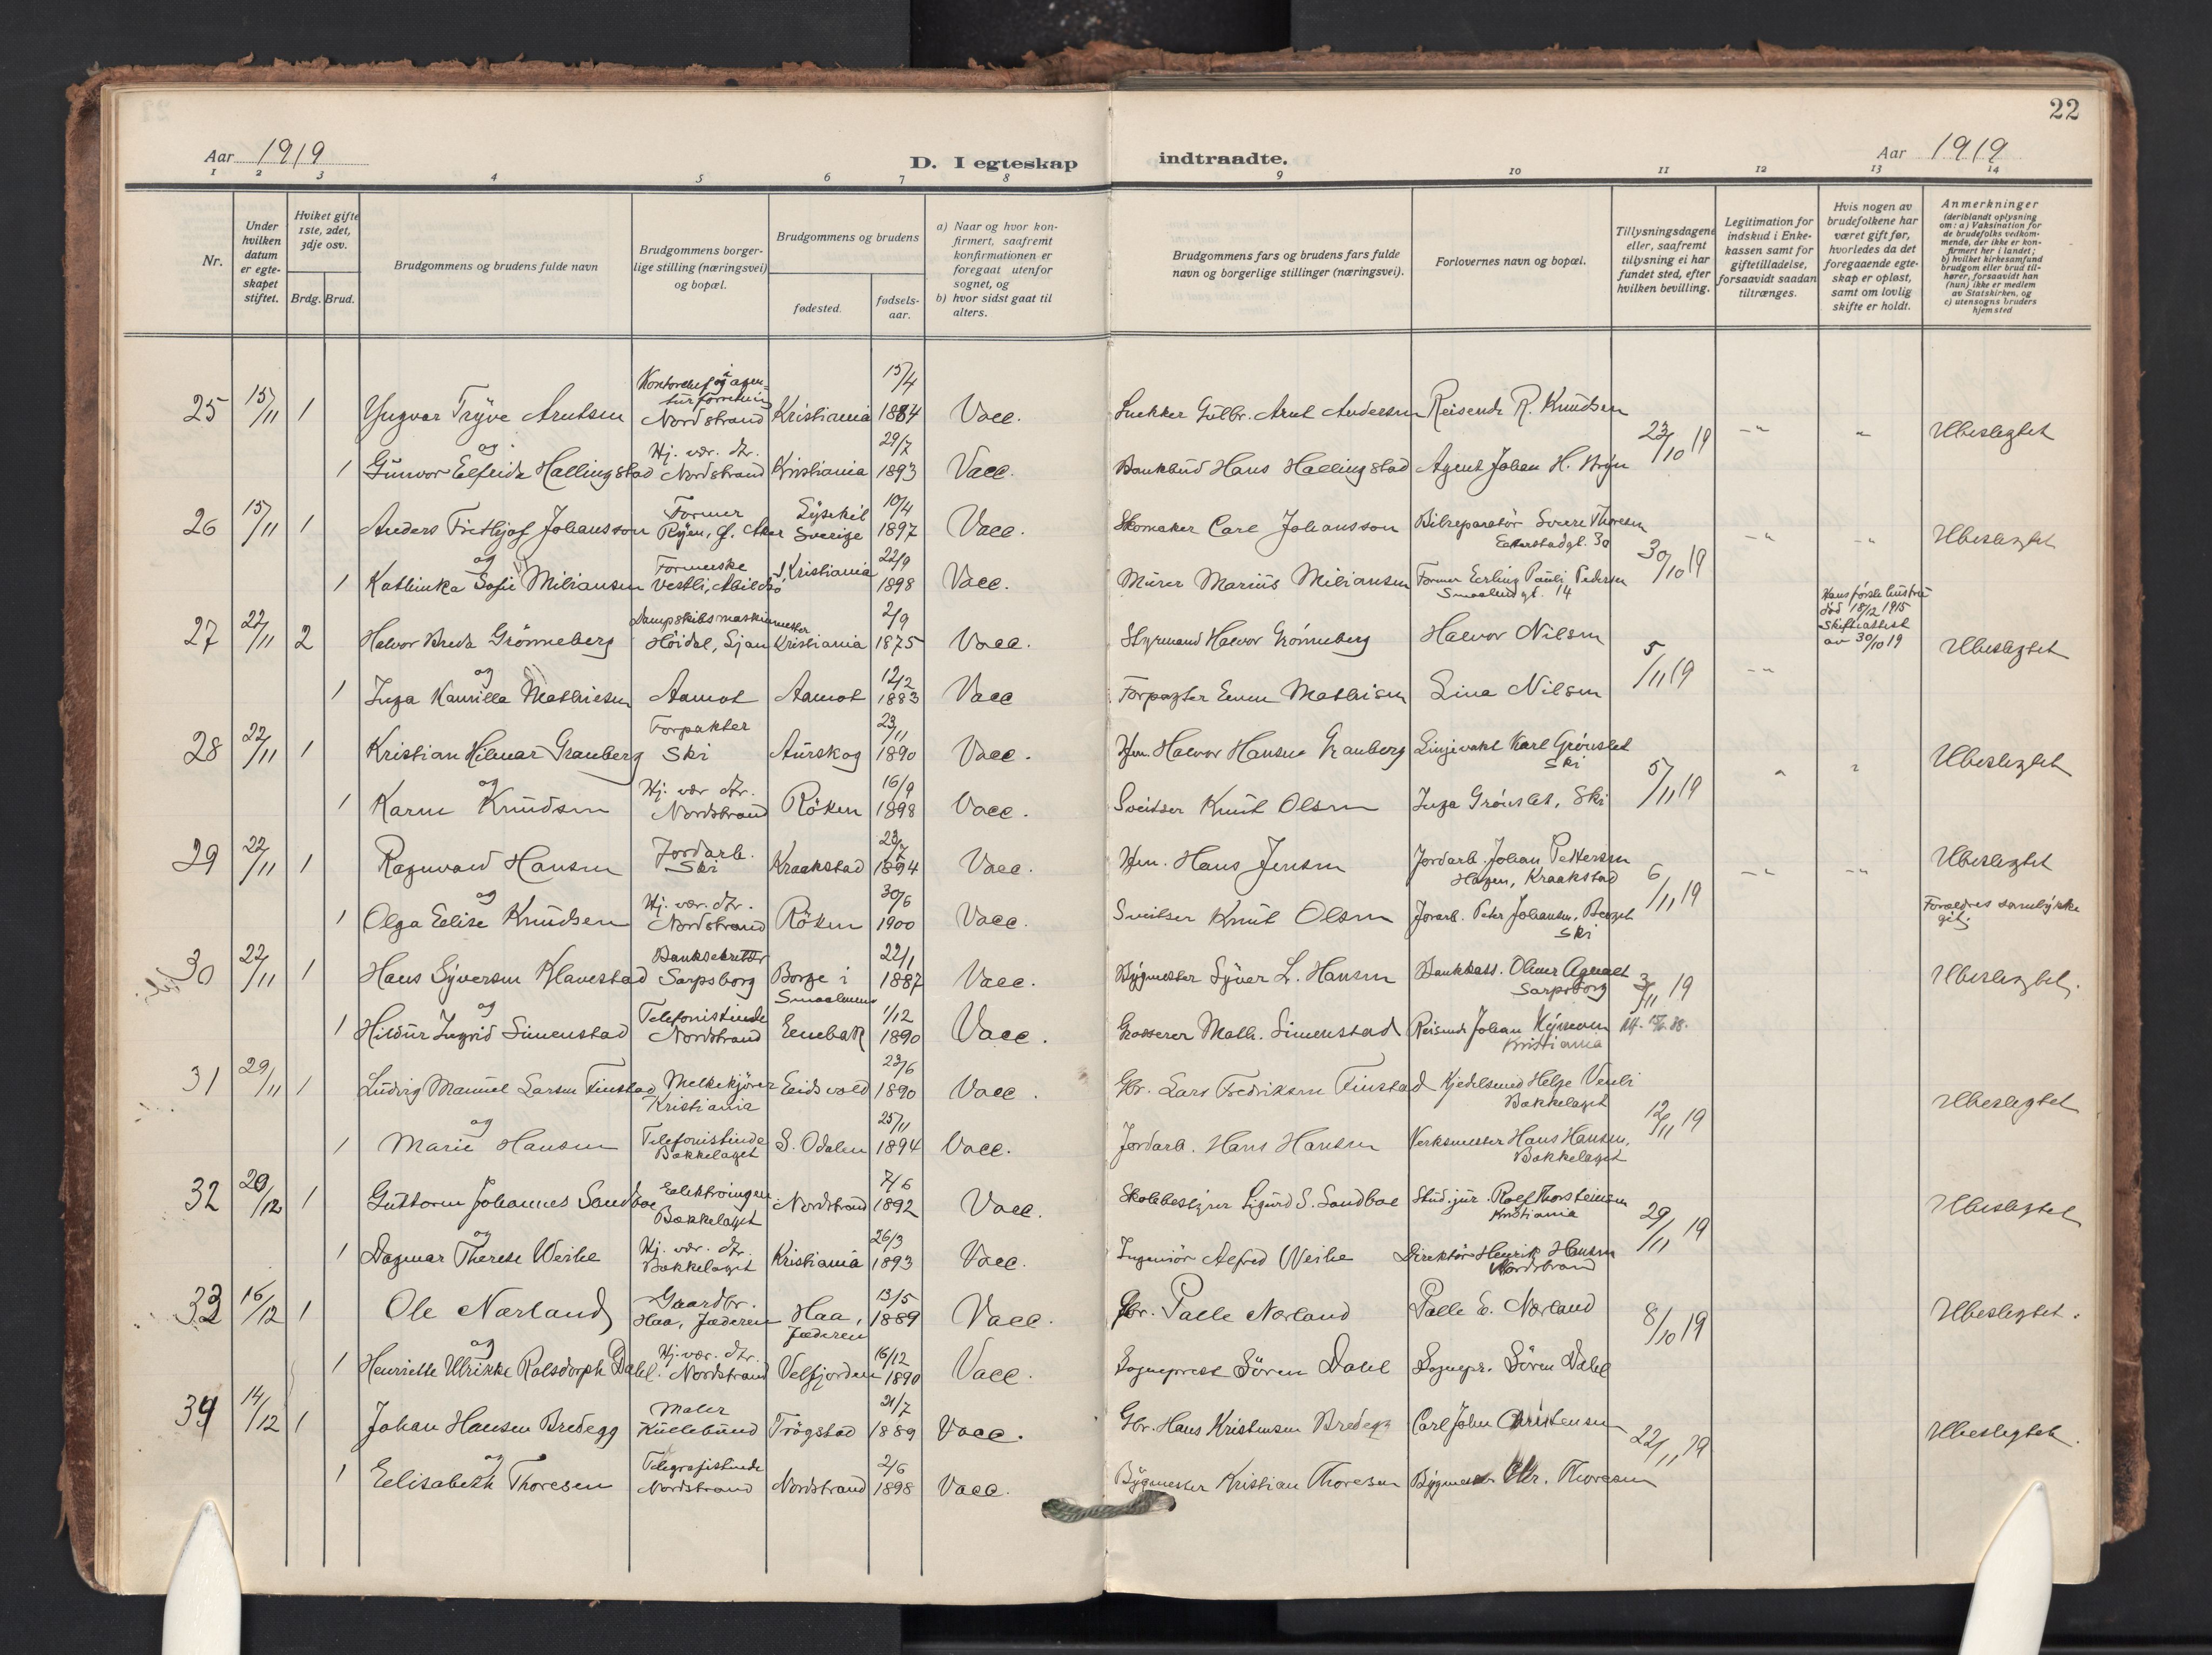 22
Aar 1919
D. I egteskap indtraadte.
Aar 1919
1 2 3 4 5 6 7 8 9 10 11 12 13 14
Nr.
Under hvilken datum er egteskapet stiftet.
Hviket gifte 1ste, 2det, 3dje osv.
Brdg. Brud.
Brudgommens og brudens fulde navn
Brudgommens borgerlige stilling (næringsvei) og bopæl.
Brudgommens og brudens
fødested.
fødselsaar.
a) Naar og hvor konfirmert, saafremt konfirmationen er foregaat utenfor sognet, og
b) hvor sidst gaat til alters.
Brudgommens fars og brudens fars fulde navn og borgerlige stillinger (næringsvei).
Forlovernes navn og bopæl.
Tillysningsdagene eller, saafremt tillysning ei har fundet sted, efter hvilken bevilling.
Legitimation for indskud i Enkekassen samt for giftetilladelse, forsaavidt saadan tiltrænges.
Hvis nogen av brudefolkene har været gift før, hvorledes da det foregaaende egteskap er opløst, samt om lovlig skifte er holdt.
Anmerkninger
(deriblandt oplysning om: a) Vaksination for de brudefolks vedkommende, der ikke er konfirmert her i landet; b) hvilket kirkesamfund brudgom eller brud tilhører, forsaavidt han (hun) ikke er medlem av Statskirken, og c) utensogns bruders hjemsted
25 15/11 1 Yngvar Trÿve Arntsen Nordstrand Kristiania 15/4 1884 Vacc. Snekker Gulbr. Arnt Andersen Reisende R. Knudsen 23/10 19 -"- " Ubeslegtet
og
1 Gunvor Elfrida Hallingstad Hj. vær. dtr. Nordstrand Kristiania 29/7 1893 Vacc. Bankbud Hans Hallingstad Agent Johan H. Bryn
26 15/11 1 Anders Frithjof Johansson Former Ryen, Ø. Aker Lysekil Sverige 10/4 1897 Vacc. Skomaker Carl Johansson Bilreparatør Sverre Thoresen 30 30/10 19 -"- -"- Ubeslegtet
og
1 Kathinka Sofie Miliansen Formerske Vestli, Abildsø Kristiania 22/9 1898 Vacc. Murer Marius Miliansen Former Erling Pauli Pedersen Smaalensgt. 14
27 22/11 2 Halvor Breda Grönneberg Dampskibsmaskinmester Höidal, Ljan Kristiania 2/9 1875 Vacc. Styrmand Halvor Grönneberg Halvor Nilsen 5/11 19 -"- Hans første hustru död 18/2 1915 Skifteattest av 30/10 19 Ubeslegtet
og
1 Inga Kamilla Mathiesen Aamot Aamot 12/2 1883 Vacc Forpagter Even Mathisen Lina Nilsen
28 22/11 1 Kristian Hilmar Granberg Forpakter Ski Aurskog 23/11 1890 Vacc. Hm. Halvor Hansen Granberg Linjevakt Karl Grönslet Ski 5/11 19 " " Ubeslegtet
og
1 Karen Knudsen Hj. vær dtr. Nordstrand Röken 16/9 1898 Vacc. Sveitser Knut Olsen Inga Grönslet, Ski
29 22/11 1 Ragnvald Hansen Jordarb. Ski Kraakstad 23/7 1894 Vacc. Hm. Hans Jensen Jordarb. Johan Pettersen Hagen, Kraakstad 6/11 19 -"- -"- Ubeslegtet
og
1 Olga Elise Knudsen Hj. vær. dtr. Nordstrand Röken 30/6 1900 Vacc. Sveitser Knut Olsen Jorarb. Peter Johansen, Berget Ski Forældres samtykke git.
30 22/11 1 Hans Syversen Klavestad Banksekretær Sarpsborg Borge i Smaalenene 22/1 1887 Vacc. Bygmester Syver L. Hansen Bankkass. Olmer Agnalt Sarpsborg 3/11 19 Ubeslegtet.
og
1 Hildur Ingrid Simenstad Telefonistinde Nordstrand Enebak 1/12 1890 Vacc. Grosserer Math. Simenstad Reisende Johan Kristiania
31 29/11 1 Ludvig Manuel Larsen Finstad Melkekjører Kristiania Eidsvold 23/6 1890 Vacc. Gbr. Lars Fredriksen Finstad Kjedelsmed Helge Venli Bækkelaget 12/11 19 Ubeslegtet
og
1 Marie Hansen Telefonistinde Bækkelaget S. Odalen 25/11 1894 Vacc. Jordarb. Hans Hansen Verksmester Hans Hansen, Bækkelaget
32 20/12 1 Guttorm Johannes Sandboe Elektroingen. Bækkelaget Nordstrand 7/6 1892 Vacc. Skolebestyrer Sigurd S. Sandboe Stud. jur. Rolf Thorsteinsen Kristiania 29/11 19 Ubeslegtet
og
1 Dagmar Therese Weihe Hj. vær. dtr. Bækkelaget Kristiania 26/3 1893 Vacc. Ingeniør Alfred Weihe Direktør Henrik Hansen Nordstrand
33 16/12 1 Ole Nærland Gaardbr. Haa, Jæderen Haa, Jæderen 13/5 1889 Vacc. Gbr. Palle Nærland Palle E. Nærland 8/10 19 Ubeslegtet.
og
1 Henriette Ulrikke Rolsdorph Dahl. Hj. vær. dtr. Nordstrand Velfjorden 16/12 1890 Vacc. Sogneprest Sören Dahl Sognepr. Sören Dahl
34 14/12 1 Johan Hansen Bredegg Maler Trögstad 21/7 1889 Vacc. Gbr. Hans Kristensen Bredegg Carl John Christensen 22/11 19 Ubeslegtet.
og
1 Elisabeth Thoresen Telegrafistinde Nordstrand Nordstrand 2/6 1898 Vacc. Bygmester Kristian Thoresen Bygmester Chr. Thoresen